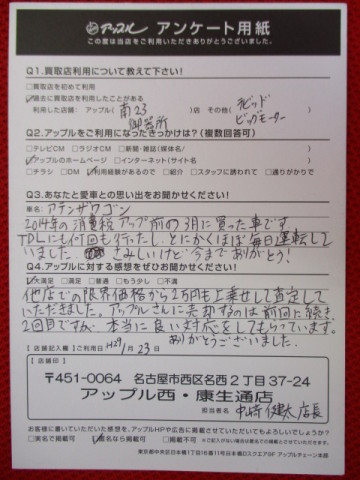 アップル アンケート用紙
この度は当店をご利用いただきありがとうございました。
Q1.買取店利用について教えて下さい!
□買取を初めて利用
☑過去に買取を利用したことがある
利用した店舗: アップル( 南23 御器所 )店 その他( ラビット ビッグモーター )
Q2.アップルをご利用になったきっかけは?(複数回答可)
□テレビCM □ラジオCM □新聞・雑誌(媒体名 )
☑アップルのホームページ □インターネット(サイト名 )
□チラシ □DM ☑利用経験があるので □紹介 □スタッフに誘われて □通りがかりで
Q3.あなたと愛車との思い出をお聞かせください!
車名: アテンザワゴン
2014年の消費税アップ前の3月に買った車です
TDLにも何回も行ったし、とにかくほぼ毎日運転して
いました。さみしいけど今までありがとう!
Q4.アップルに対する感想をぜひお聞かせください!
☑大満足 □満足 □普通 □もう少し □不満
他店での限界価格から2万円も上乗せして査定して
いただきました。アップルさんに売却するのは前回に続き
2回目ですが、本当に良い対応をしてもらっています。
ありがとうございました。
【店舗記入欄】ご利用日 H29/ 1月 23日
【店舗印】
〒451-0064 名古屋市西区名西2丁目37-24
アップル西・康生通店
担当者名 中崎健太店長
お客様に書いていただいた感想を、アップルHPや広告に掲載させていただいてもよろしいでしょうか?
□実名で掲載可 ☑匿名なら掲載可 □掲載不可
東京都中央区日本橋1丁目16番11号日本橋Dスクエア5F アップルチェーン本部